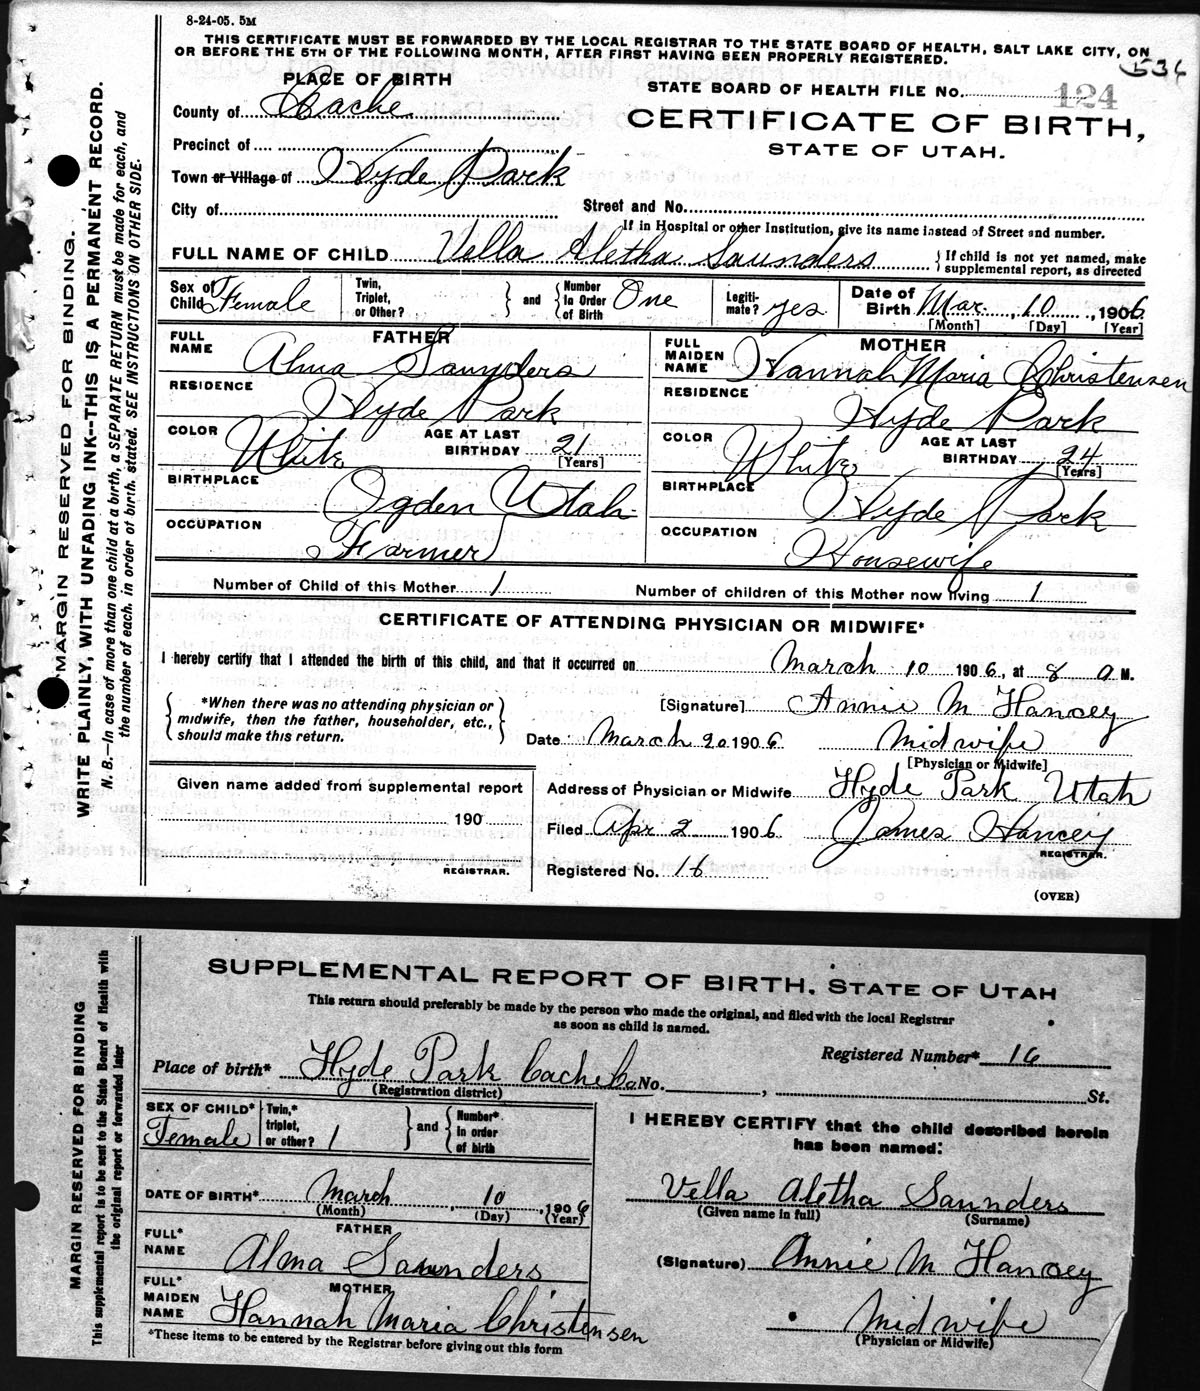 8-24-05. 5M
THIS CERTIFICATE MUST BE FORWARDED BY THE LOCAL REGISTRAR TO THE STATE BOARD OF HEALTH, SALT LAKE CITY, ON
OR BEFORE THE 5TH OF THE FOLLOWING MONTH, AFTER FIRST HAVING BEEN PROPERLY REGISTERED.
536
PLACE OF BIRTH
STATE BOARD OF HEALTH FILE No. 124
County of Cache
CERTIFICATE OF BIRTH,
STATE OF UTAH.
Precinct of
Town or Village of Hyde Park
City of
Street and No.
If in Hospital or other Institution, give its name instead of Street and number.
FULL NAME OF CHILD Vella Aletha Saunders
If child is not yet named, make
supplemental report, as directed
Sex of Child Female
Twin, Triplet, or Other?
and
Number in Order of Birth One
Legitimate? yes
Date of Birth Mar. 10, 1906
[Month] [Day] [Year]
FATHER
FULL NAME Alma Saunders
RESIDENCE Hyde Park
COLOR White
AGE AT LAST BIRTHDAY 21
[Years]
BIRTHPLACE Ogden Utah
OCCUPATION Farmer
MOTHER
FULL MAIDEN NAME Hannah Maria Christensen
RESIDENCE Hyde Park
COLOR White
AGE AT LAST BIRTHDAY 24
[Years]
BIRTHPLACE Hyde Park
OCCUPATION Housewife
Number of Child of this Mother 1
Number of children of this Mother now living 1
CERTIFICATE OF ATTENDING PHYSICIAN OR MIDWIFE*
I hereby certify that I attended the birth of this child, and that it occurred on March 10 1906, at 8 a M.
*When there was no attending physician or
midwife, then the father, householder, etc.,
should make this return.
[Signature] Annie M Hancey
Date March 20 1906
Midwife
[Physician or Midwife]
Given name added from supplemental report
190
REGISTRAR.
Address of Physician or Midwife Hyde Park Utah
Filed Apr 2 1906
James Hancey
REGISTRAR.
Registered No. 16
(OVER)
MARGIN RESERVED FOR BINDING.
WRITE PLAINLY, WITH UNFADING INK--THIS IS A PERMANENT RECORD.
N. B.—In case of more than one child at a birth, a SEPARATE RETURN must be made for each, and
the number of each, in order of birth, stated. SEE INSTRUCTIONS ON OTHER SIDE.
SUPPLEMENTAL REPORT OF BIRTH. STATE OF UTAH
This return should preferably be made by the person who made the original, and filed with the local Registrar
as soon as child is named.
Registered Number* 16
Place of birth* Hyde Park Cache Co. No. , St.
(Registration district)
SEX OF CHILD* Female
Twin,* triplet, or other? 1
and
Number* in order of birth
I HEREBY CERTIFY that the child described herein
has been named:
DATE OF BIRTH* March 10, 1906
(Month) (Day) (Year)
Vella Aletha Saunders
(Given name in full) (Surname)
FATHER
FULL* NAME Alma Saunders
(Signature) Annie M Hancey
MOTHER
FULL* MAIDEN NAME Hannah Maria Christensen
Midwife
(Physician or Midwife)
*These items to be entered by the Registrar before giving out this form
MARGIN RESERVED FOR BINDING
This supplemental report is to be sent to the State Board of Health with
the original report or forwarded later